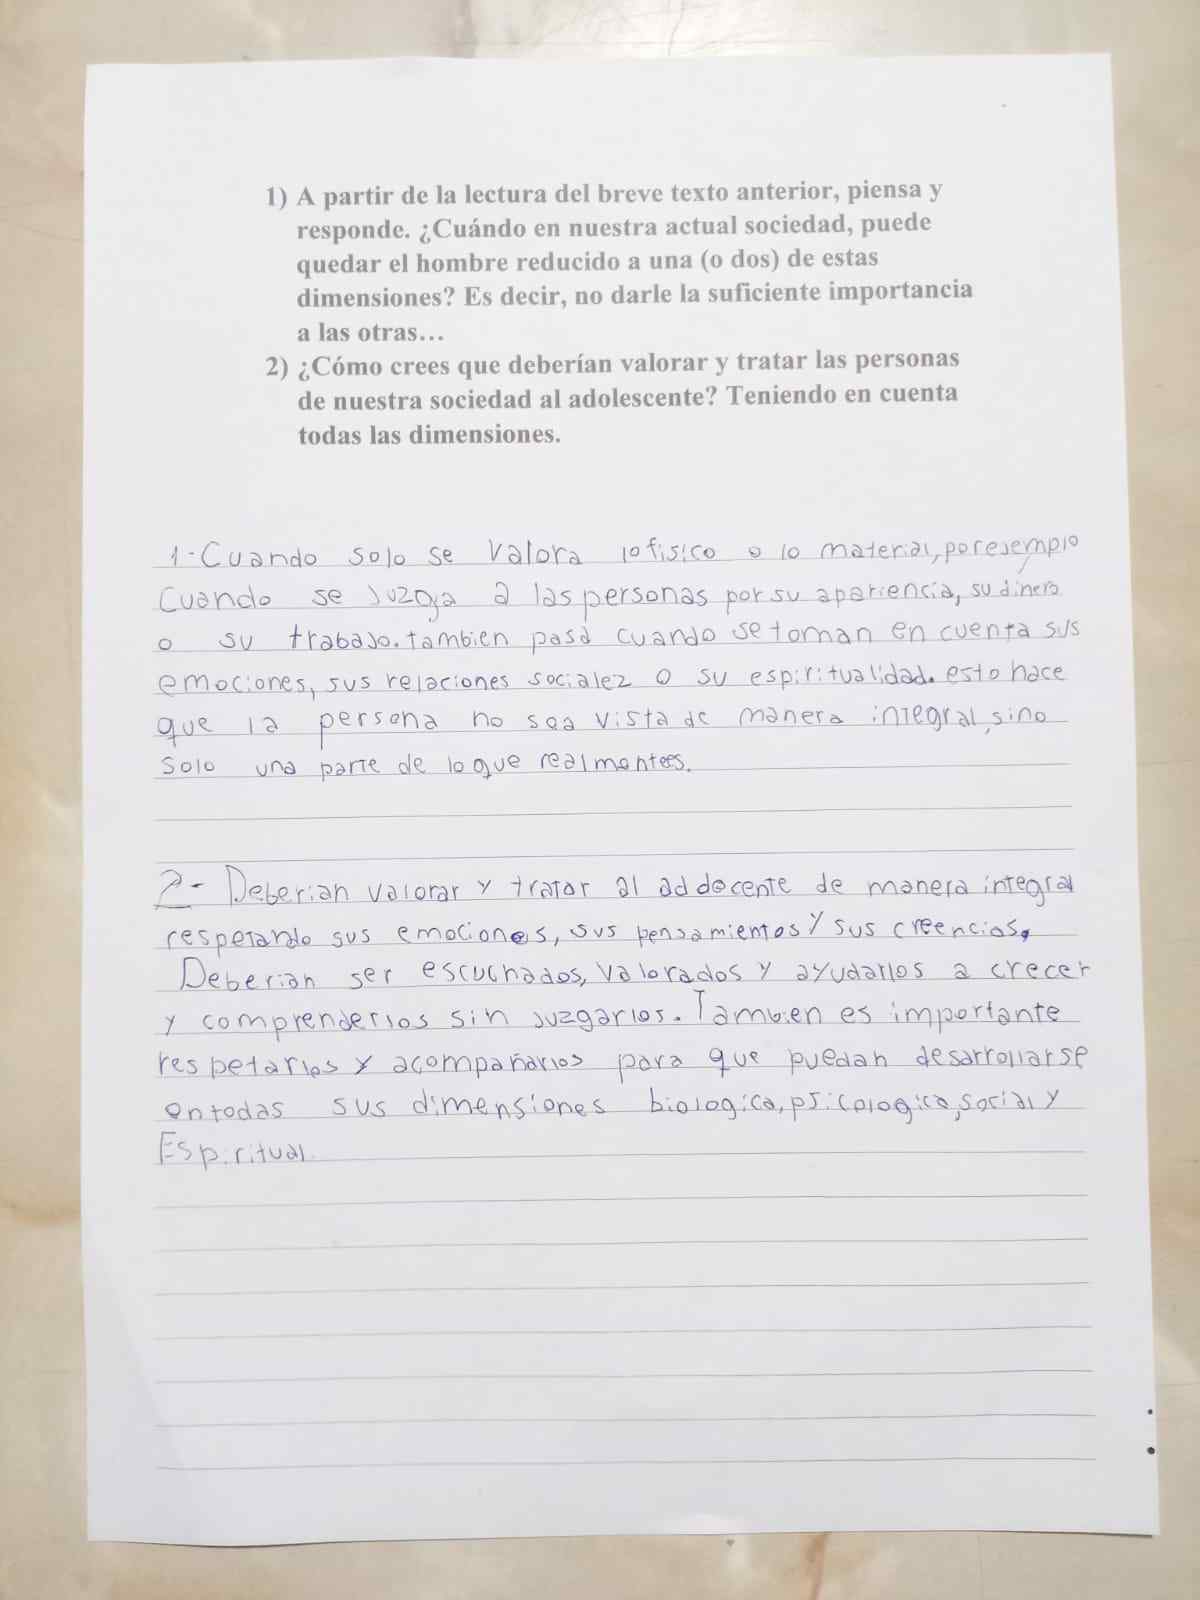 1) A partir de la lectura del breve texto anterior, piensa y
responde. ¿Cuándo en nuestra actual sociedad, puede
quedar el hombre reducido a una (o dos) de estas
dimensiones? Es decir, no darle la suficiente importancia
a las otras…
2) ¿Cómo crees que deberían valorar y tratar las personas
de nuestra sociedad al adolescente? Teniendo en cuenta
todas las dimensiones.
1-Cuando solo se valora lo fisico o lo material, por esemplo
cuando se juzga a las personas por su apariencia, su dinero
o su trabajo. tambien pasa cuando se toman en cuenta sus
emociones, sus relaciones socialez o su espiritualidad. esto hace
que la persona no sea vista de manera integral, sino
solo una parte de lo que realmente es.
2- Deberian valorar y tratar al addocente de manera integral
respetando sus emociones, sus pensamientos y sus creencias.
Deberian ser escuchados, valorados y ayudarlos a crecer
y comprenderlos sin juzgarlos. Tambien es importante
respetarlos y acompañarlos para que puedan desarrollarse
en todas sus dimensiones biologica, psicologica, social y
Espiritual.